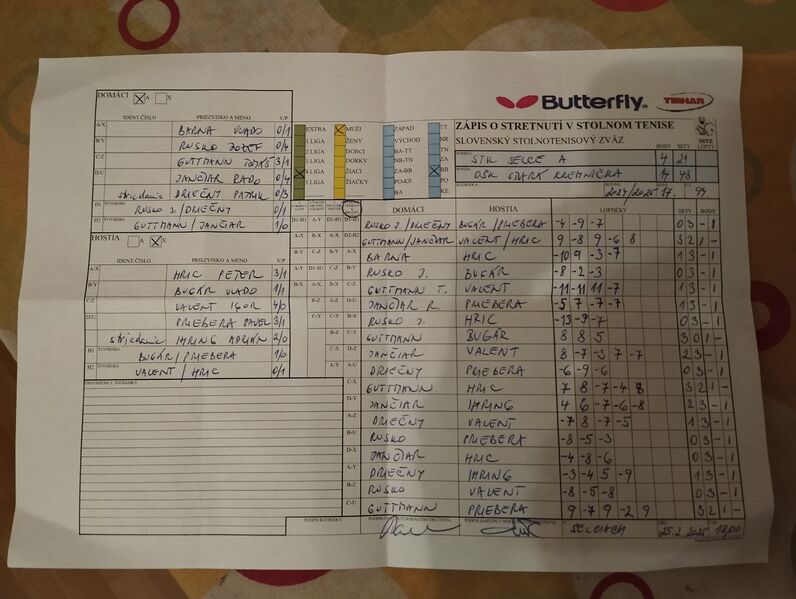 Butterfly
TIBHAR
DOMÁCI A X
IDENT.ČÍSLO PRIEZVISKO A MENO V/P
A/X BARNA VLADO 0/1
B/Y RUSKO JOZEF 0/4
C/Z GUTTMANN TOMÁŠ 3/1
D/U JANČIAR RADO 0/4
striedanie DRIEČNY PATRIK 0/3
D1 ŠTVORHRA RUSKO J./DRIEČNY 0/1
D2 ŠTVORHRA GUTTMANN/JANČIAR 1/0
HOSTIA A X
IDENT.ČÍSLO PRIEZVISKO A MENO V/P
A/X HRIC PETER 3/1
B/Y BUGÁR VLADO 1/1
C/Z VALENT IGOR 4/0
D/U PRIEBERA PAVEL 3/1
striedanie IHRING ADRIÁN 2/0
H1 ŠTVORHRA BUGÁR/PRIEBERA 1/0
H2 ŠTVORHRA VALENT/HRIC 0/1
EXTRA MUŽI ZÁPAD TT
1 LIGA ŽENY VÝCHOD
DORCI BA-TT TN
DORKY NR-TN
4 LIGA ŽIACI ZA-BB BB
5 LIGA ŽIAČKY PO-KE
BA
ZÁPIS O STRETNUTÍ V STOLNOM TENISE
SLOVENSKÝ STOLNOTENISOVÝ ZVÄZ
BODY SETY LOPTY
STK SELCE A 4 21
OŠK STARÁ KREMNIČKA 14 48
2024/2025 17.
DOMÁCI HOSTIA LOPTIČKY SETY BODY
D1-H1 RUSKO J./DRIEČNY BUGÁR/PRIEBERA -4 -9 -7 0 3 - 1
D2-H2 GUTTMANN/JANČIAR VALENT/HRIC 9 -8 9 -6 8 3 2 1 -
A-X BARNA HRIC -10 9 -3 -7 1 3 - 1
B-Y RUSKO J. BUGÁR -8 -2 -3 0 3 - 1
C-Z GUTTMANN T. VALENT -11 -11 11 -7 1 3 - 1
D-U JANČIAR R. PRIEBERA -5 7 -7 -7 1 3 - 1
B-X RUSKO J. HRIC -13 -9 -7 0 3 - 1
C-Y GUTTMANN BUGÁR 8 8 5 3 0 1 -
D-Z JANČIAR VALENT 8 -7 -3 7 -7 2 3 - 1
A-U DRIEČNY PRIEBERA -6 -9 -6 0 3 - 1
C-X GUTTMANN HRIC 7 8 -7 -4 8 3 2 1 -
D-Y JANČIAR IHRING 4 6 -7 -6 -8 2 3 - 1
A-Z DRIEČNY VALENT -7 8 -7 -5 1 3 - 1
B-U RUSKO PRIEBERA -8 -5 -3 0 3 - 1
D-X JANČIAR HRIC -4 -8 -6 0 3 - 1
A-Y DRIEČNY IHRING -3 -4 5 -9 1 3 - 1
B-Z RUSKO VALENT -8 -5 -8 0 3 - 1
C-U GUTTMANN PRIEBERA 9 -7 9 -2 9 3 2 1 -
PODPIS ROZHODCU
V SELCIACH 25.2.2025 18,00